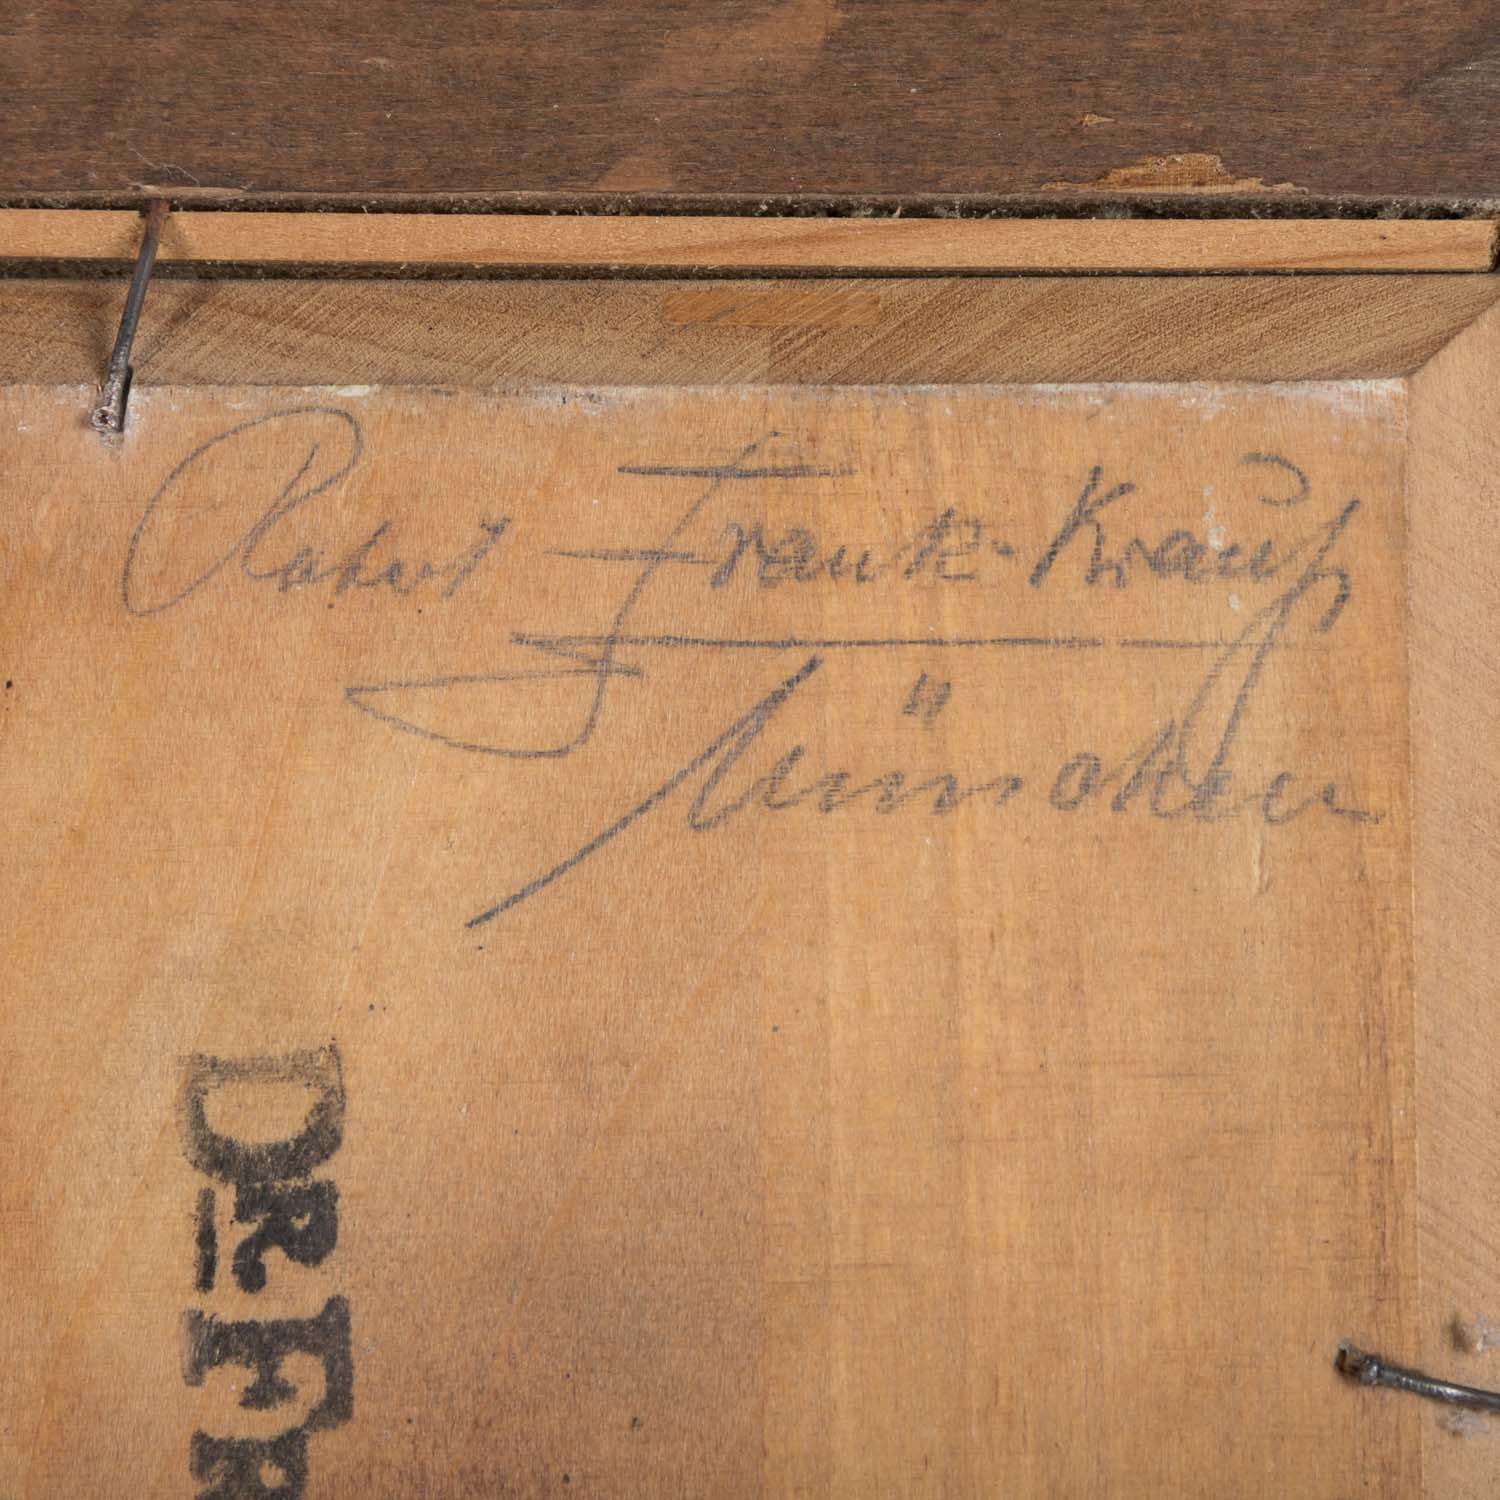 Robert Frank-Krauß
München
Dr. Fr